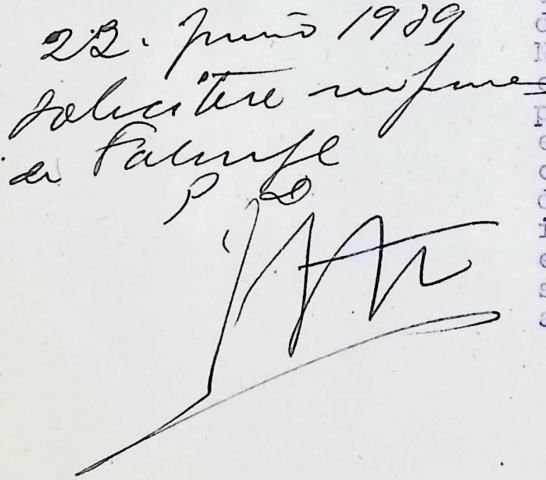 22. Junio 1939
Solicitese informe
de Falange
P. D